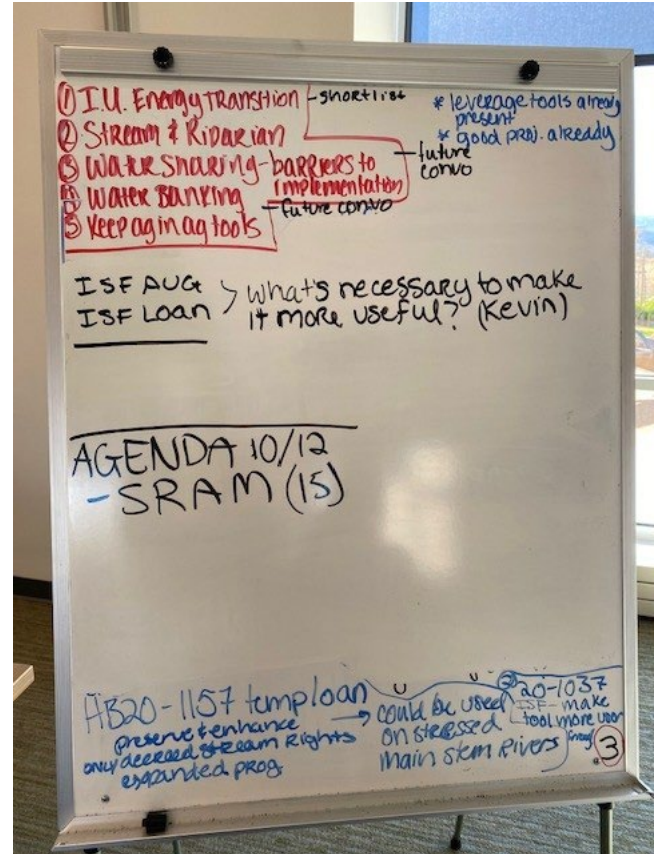 ① I.U. Energy Transition - shortlist
② Stream & Riparian
③ Water Sharing - barriers to
implementation
④ Water Banking
⑤ Keep ag in ag tools
* leverage tools already
present
* good proj. already
- future
convo
- future convo
ISF AUG
ISF Loan > what's necessary to make
it more useful? (Kevin)
AGENDA 10/12
- SRAM (15)
HB20-1157 temp loan
preserve & enhance
only decreed stream rights
expanded prog.
→ could be used
on stressed
main stem rivers
20-1037
ISF - make
tool more user
③